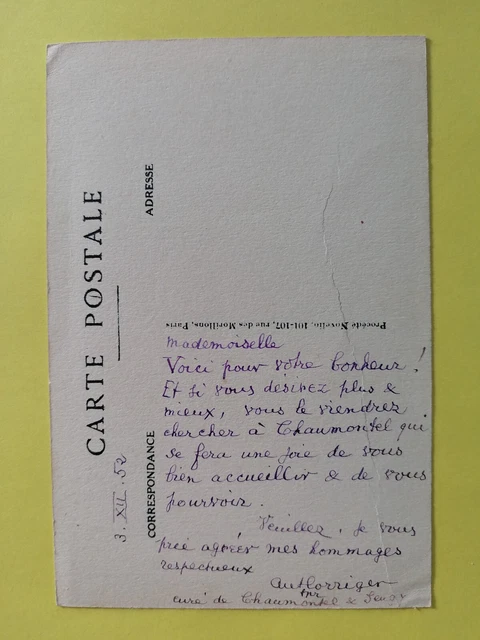 CARTE POSTALE
ADRESSE
CORRESPONDANCE
3. XII. 52
Procédé Novelto, 101-107, rue des Morillons, Paris
Mademoiselle
Voici pour votre bonheur !
Et si vous désirez plus &
mieux, vous le viendrez
chercher à Chaumontel qui
se fera une joie de vous
bien accueillir & de vous
pourvoir.
Veuillez, je vous
prie agréer mes hommages
respectueux
curé de Chaumontel &